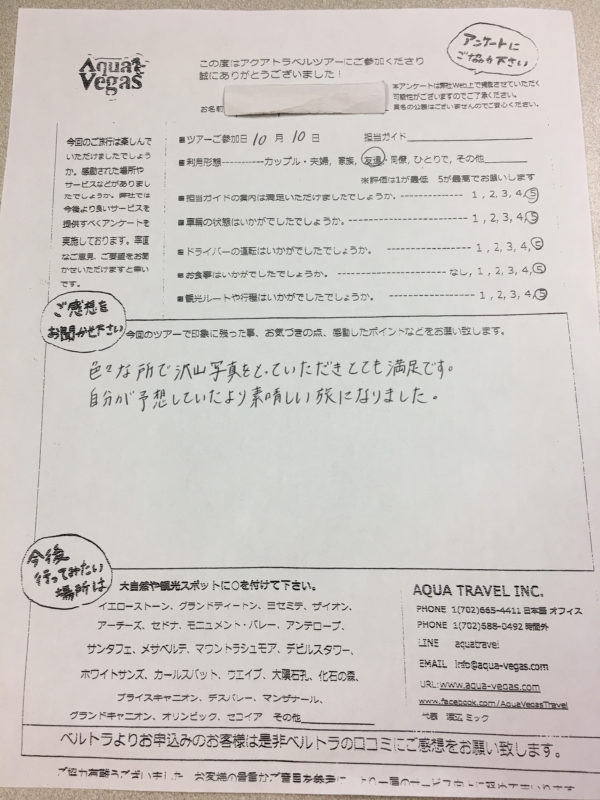 Aqua Vegas
この度はアクアトラベルツアーにご参加くださり
誠にありがとうございました！
アンケートに
ご協力下さい
本アンケートは弊社Web上で掲載させていただく
可能性がございますのでご了承ください。
実名の公表はございませんのでご安心ください。
お名前
今回のご旅行は楽しんで
いただけましたでしょう
か。感動された場所や
サービスなどがありまし
たでしょうか。弊社では
今後より良いサービスを
提供すべくアンケートを
実施しております。率直
なご意見、ご要望をお聞
かせいただけますと幸い
です。
■ツアーご参加日 10 月 10 日 担当ガイド
■利用形態-----------カップル・夫婦, 家族, 友達・同僚, ひとりで, その他
※評価は1が最低 5が最高でお願いします
■担当ガイドの案内は満足いただけましたでしょうか。 ---------------- 1 , 2, 3, 4, 5
■車輛の状態はいかがでしたでしょうか。 ---------------------- 1 , 2, 3, 4, 5
■ドライバーの運転はいかがでしたでしょうか。 ------------------- 1 , 2, 3, 4, 5
■お食事はいかがでしたでしょうか。 --------------------- なし, 1, 2, 3, 4, 5
■観光ルートや行程はいかがでしたでしょうか。 ------------------- 1 , 2, 3, 4, 5
ご感想を
お聞かせ下さい
今回のツアーで印象に残った事、お気づきの点、感動したポイントなどをお願い致します。
色々な所で沢山写真をとっていただきとても満足です。
自分が予想していたより素晴しい旅になりました。
今後
行ってみたい
場所は
大自然や観光スポットに○を付けて下さい。
イエローストーン、グランドティートン、ヨセミテ、ザイオン、
アーチーズ、セドナ、モニュメント・バレー、アンテロープ、
サンタフェ、メサベルデ、マウントラシュモア、デビルスタワー、
ホワイトサンズ、カールスバット、ウエイブ、大隕石孔、化石の森、
ブライスキャニオン、デスバレー、マンザナール、
グランドキャニオン、オリンピック、セコイア その他
AQUA TRAVEL INC.
PHONE 1(702)665-4411 日本語 オフィス
PHONE 1(702)588-0492 時間外
LINE aquatravel
EMAIL info@aqua-vegas.com
URL:www.aqua-vegas.com
www.facebook.com/AquaVegasTravel
代表 渡辺 ミック
ベルトラよりお申込みのお客様は是非ベルトラの口コミにご感想をお願い致します。